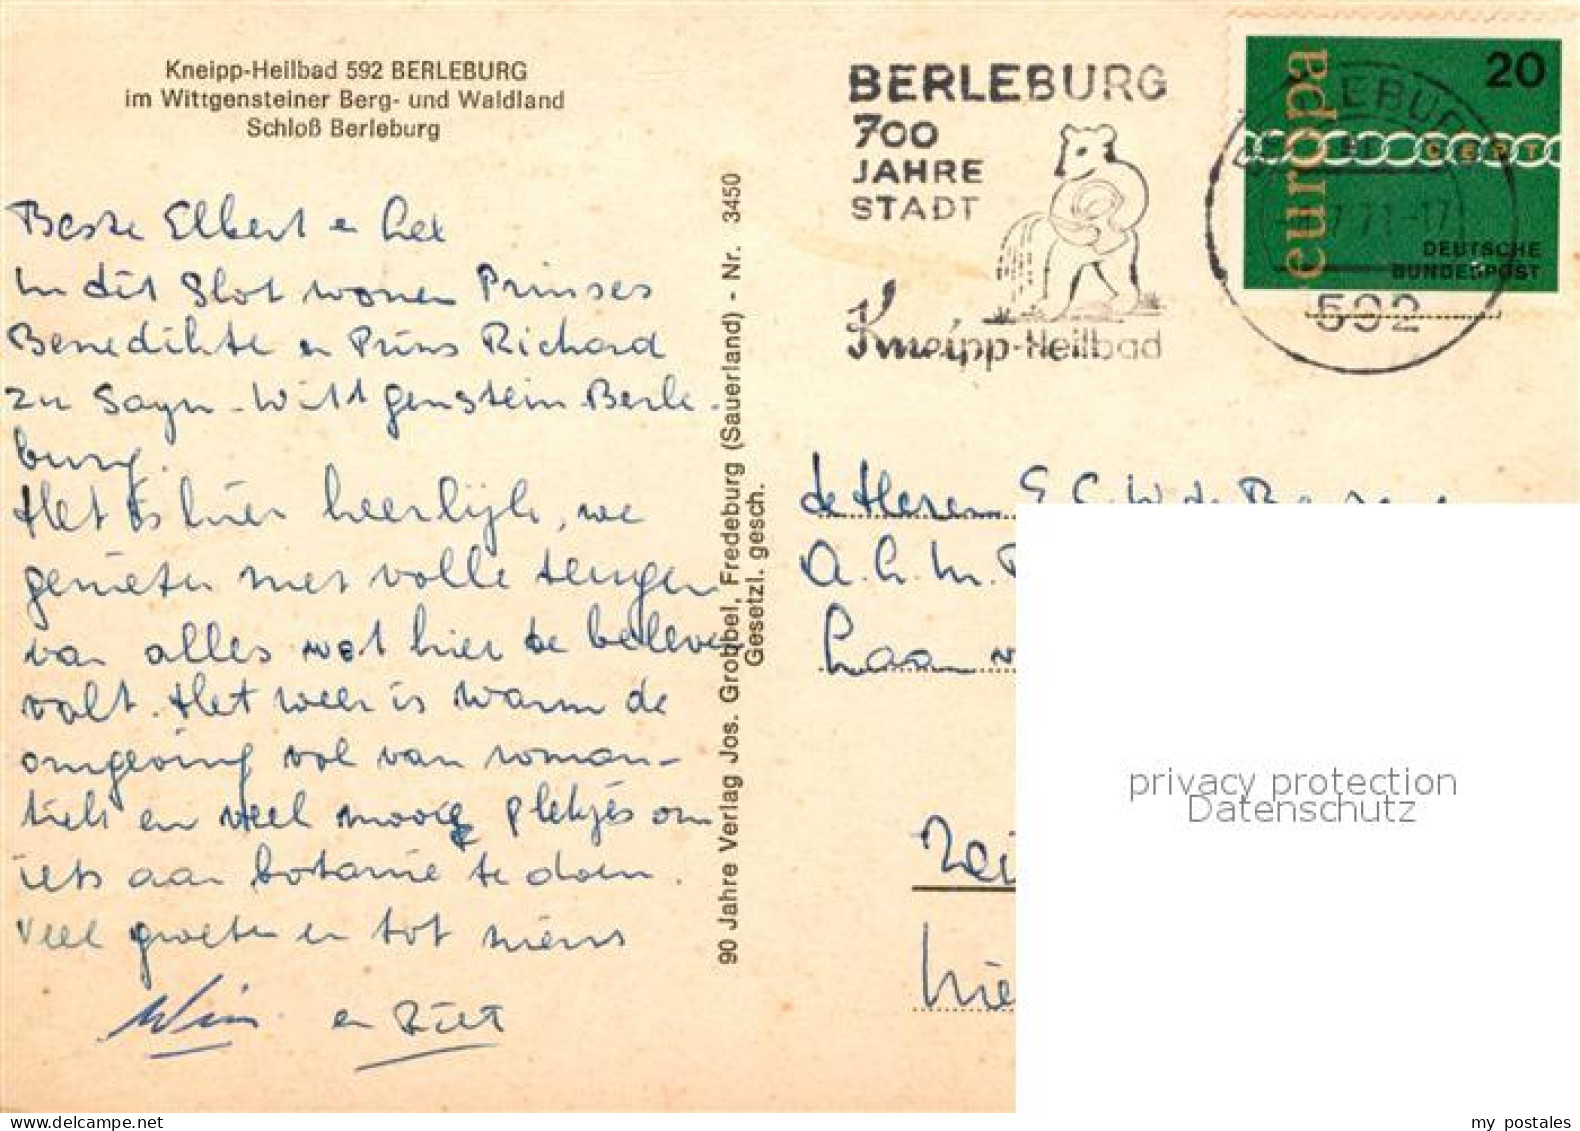 Kneipp-Heilbad 592 BERLEBURG
im Wittgensteiner Berg- und Waldland
Schloß Berleburg
Beste Elbert en Lex
In dit Slot wonen Prinses
Benedikte en Prins Richard
zu Sayn-Wittgenstein-Berle-
burg.
Het is hier heerlijk, we
genieten met volle teugen
van alles wat hier te beleven
valt. Het weer is warm de
omgeving vol van roman-
tiek en veel mooie plekjes om
iets aan botanie te doen.
Veel groeten en tot ziens
Wim en
90 Jahre Verlag Jos. Grobbel, Fredeburg (Sauerland) - Nr. 3450
Gesetzl. gesch.
BERLEBURG
700
JAHRE
STADT
Kneipp-Heilbad
europa
20
CEPT
DEUTSCHE
BUNDESPOST
7.71-17
592
de Heren
A.C.M.
Laan v
privacy protection
Datenschutz
my postales